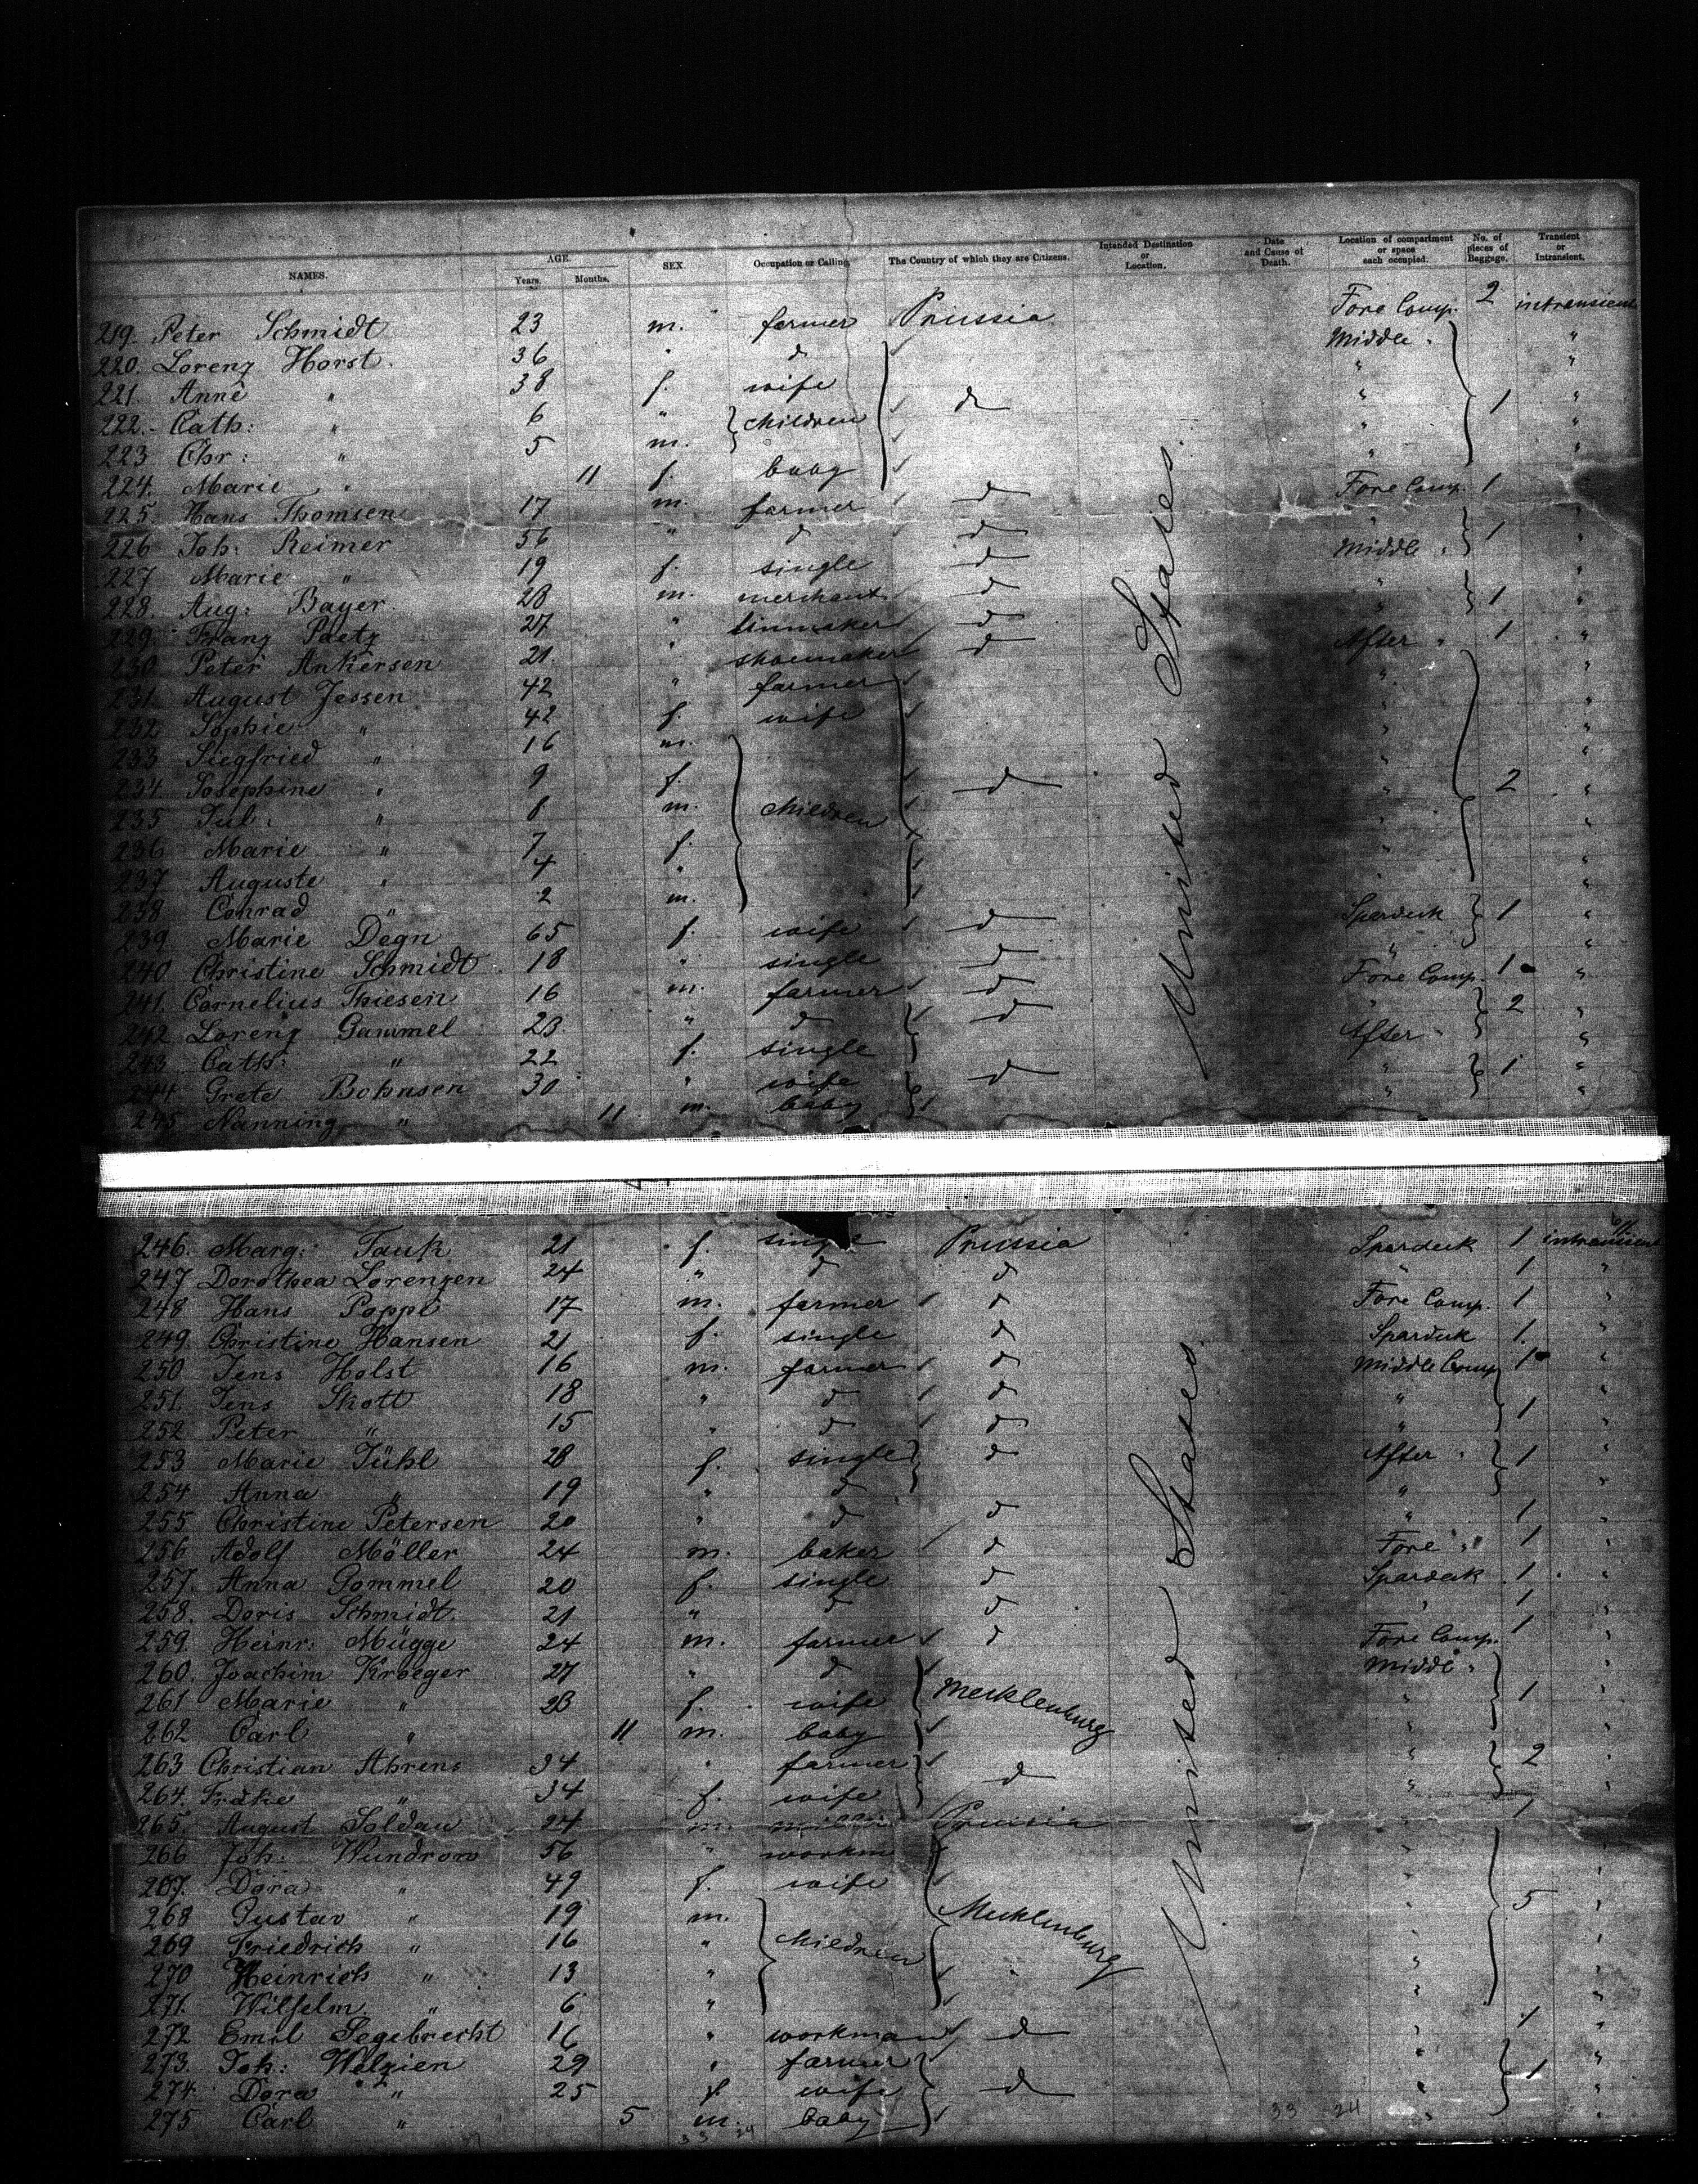 NAMES. AGE. Years. Months. SEX. Occupation or Calling. The Country of which they are Citizens. Intended Destination or Location. Date and Cause of Death. Location of compartment or space each occupied. No. of pieces of Baggage. Transient or Intransient.
219. Peter Schmidt 23 m. farmer Prussia Fore Comp. 2 intransient
220. Lorenz Horst. 36 " d Middle " "
221. Anne " 38 f. wife " "
222. Cath: " 6 " children d " 1 "
223 Chr: " 5 m. " "
224. Marie " 11 f. baby " "
225. Hans Thomsen 17 m. farmer d Fore Comp. 1
226 Joh: Reimer 56 " d d " 1 "
227 Marie " 19 f. single d Middle " "
228. Aug: Bayer. 28 m. merchant d " 1 "
229. Franz Paetz 27 " d "
230. Peter Ankersen 21. " shoemaker d After " 1 "
231. August Jessen 42 " farmer " "
232 Sophie " 42 f. wife " "
233 Siegfried " 16 m. children " "
234 Josephine " 9 f. d " 2 "
235 Jul: " 8 m. " "
236 Marie " 7 f. " "
237 Auguste " 4 " " "
238 Conrad " 2 m. " "
239 Marie Degn 65 f. wife d Spardeck 1 "
240 Christine Schmidt 18 " single d " "
241. Cornelius Thiesen 16 m. farmer d Fore Comp. 1 "
242 Lorenz Gammel 23. " d d " 2 "
243 Cath: " 22 f. single After " "
244 Grete Bohnsen 30 " wife d " 1 "
245 Nanning " 11 m. baby " "
United States.
246. Marg: Tauk 21 f. single Prussia Spardeck 1 intransient
247 Dorothea Lorenzen 24 " d d " 1 "
248 Hans Poppe 17 m. farmer d Fore Comp. 1 "
249. Christine Hansen 21 f. single d Spardeck 1. "
250 Jens Holst 16 m. farmer d Middle Comp 1 "
251. Jens Skott 18 " d d " 1 "
252 Peter " 15 " d d " "
253 Marie Jühl 28 f. single d After " 1 "
254 Anna " 19 " d " "
255 Christine Petersen 20 " d d " 1 "
256 Adolf Möller 24 m. baker d Fore " 1 "
257. Anna Gommel 20 f. single d Spardeck 1. "
258. Doris Schmidt. 21 " d d " 1 "
259. Heinr: Mügge 24 m. farmer d Fore Comp. 1 "
260. Joachim Kroeger 27 " d Mecklenburg Middl " "
261 Marie " 23 f. wife " 1 "
262 Carl " 11 m. baby " "
263 Christian Ahrens 34 " farmer d " 2 "
264. " 34 f. wife " "
265. August Soldau 24 m. Prussia 1 "
266 Joh: Wundrow 56 " workm "
267. Dora " 49 f. wife "
268 Gustav " 19 m. children Mecklenburg " 5 "
269 Friedrich " 16 " " "
270 Heinrich " 13 " " "
271. Wilhelm. " 6 " " "
272 Emil Segebrecht 16 " workman d " 1 "
273. Joh: Welzien 29 " farmer " "
274. Dora " 25 f. wife d " 1 "
275 Carl " 5 m. baby " "
United States.
33 24
33 24